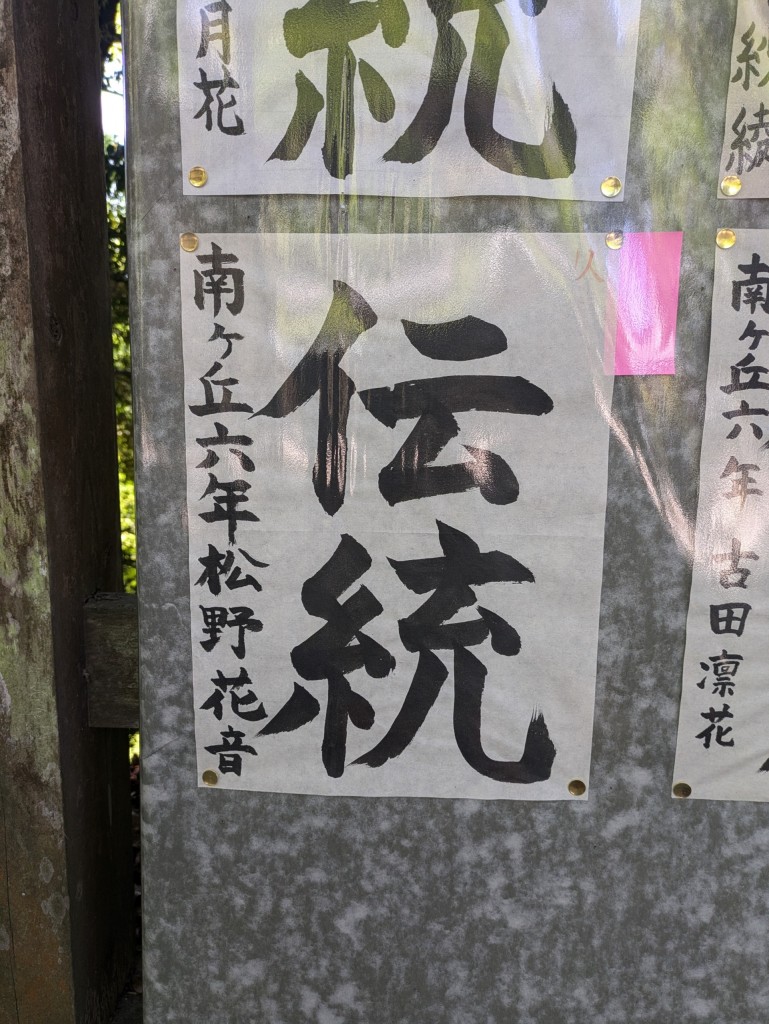 月花
統
綾
伝統
南ヶ丘六年松野花音
南ヶ丘六年古田凛花